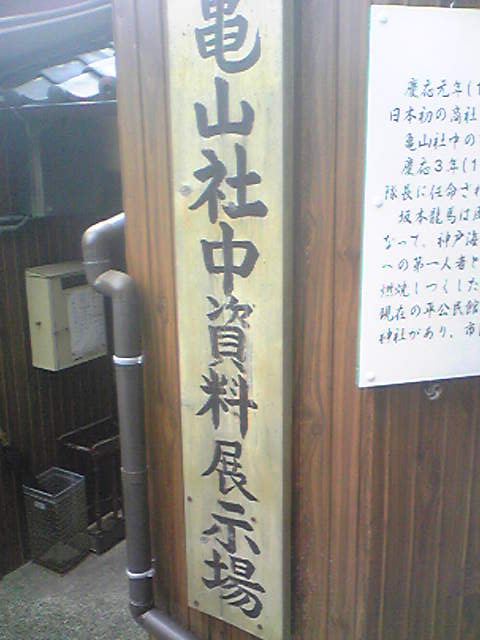 亀山社中資料展示場
慶応元年(1
日本初の商社
亀山社中の
慶応3年(1
隊長に任命され
坂本龍馬は
なって、神戸海
への第一人者と
燃焼しつくした
現在の平公民館
神社があり、市